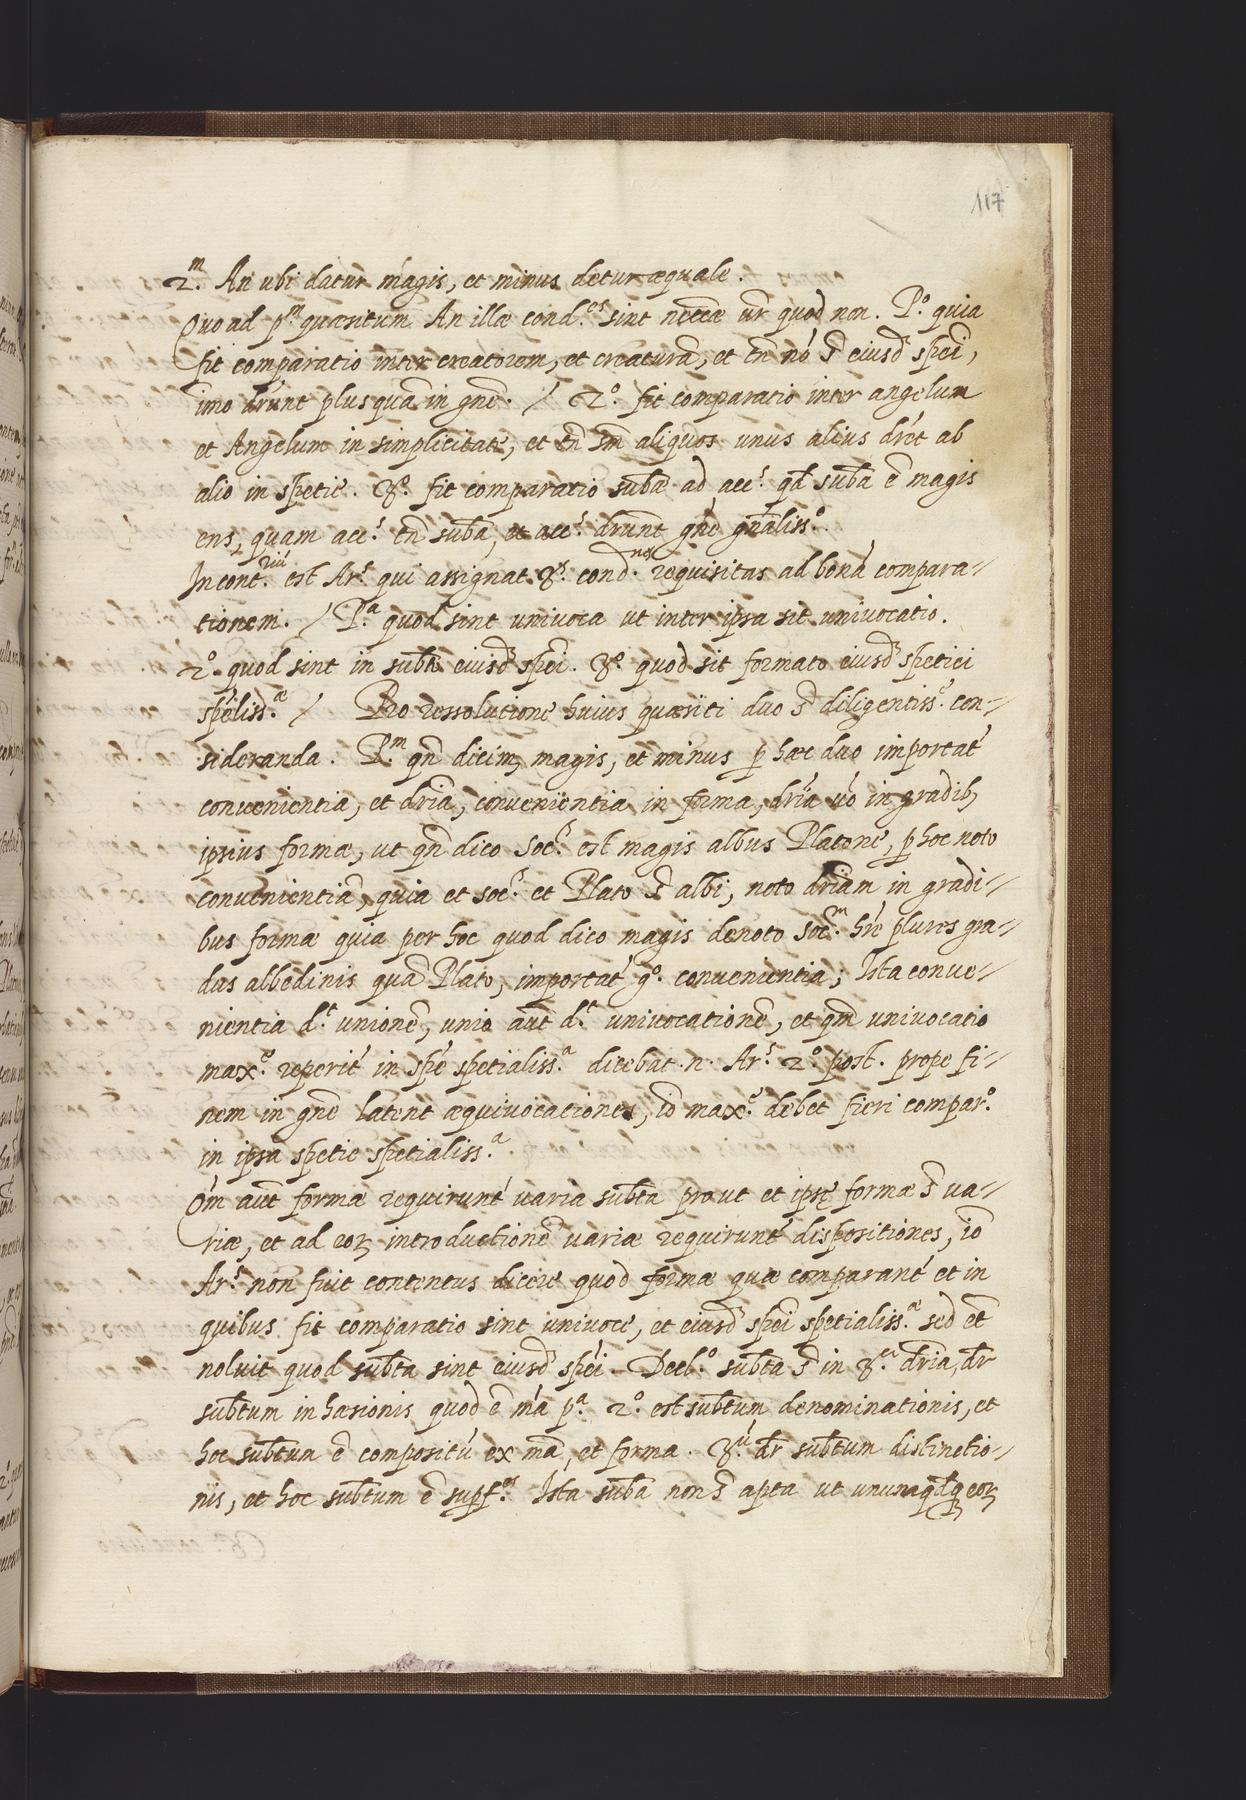 117
2.ᵐ An ubi datur magis, et minus detur æquale.
Quo ad p.ᵐ quæsitum An illæ cond.ᵉˢ sint neccæ ur̄ quod non. P.º quia
fit comparatio inter creatorem, et creaturā, et tn̄ nō s̄t eiusd̄ spēi,
imo dr̄unt plusquā in gn̄e. / 2.º fit comparatio inter angelum
et Angelum in simplicitate, et tn̄ sm̄ aliquos unus alius dr̄et ab
alio in spetie. 3.º fit comparatio subǣ ad acc.ˢ qd̄ subā ē magis
ens, quam acc.ˢ tn̄ subā, et acc.ˢ dr̄unt gn̄e gn̄aliss.º
In cont.ʳⁱᵘ́ est Ar.ˢ qui assignat 3.ˢ cond.ⁿᵉˢ requisitas ad bonā compara-//
tionem. / P.ª quod sint univoca ut inter ipsa sit univocatio.
2.º quod sint in subt̄ eiusd̄ spēi. 3.º quod sit formato eiusd̄ spetiei
spēliss.æ / Pro ressolutione huius quæsiti duo s̄t diligentiss.ᵉ con-//
sideranda. P.ᵐ qn̄ dicim9 magis, et minus ꝑ hæc duo importat́
convenientia, et dr̄ia, convenientia in forma, dr̄ia uó in gradib9
ipsius formæ, ut qn̄ dico Soc.ˢ est magis albus Platone, ꝑ hoc noto
convenientiā, quia et soc.ˢ et Plato s̄t albi, noto dr̄iam in gradi-//
bus formæ quia per hoc quod dico magis denoto soc.ᵐ hr̄e plures gra-//
dus albedinis quā Plato, importat́ g.º convenientia; Ista conve-//
nientia d.ᵗ unionē, unio aut̄ d.ᵗ univocationē, et qm̄ univocatio
max.ᵉ reperit́ in spē spetialiss.ª dicebat .n. Ar.ˢ 2.º post. prope fi-//
nem in gn̄e latent æquivocationes, iō max.ᵉ debet fieri compar.º
in ipsa spetie spetialiss.ª
Om̄ aut̄ formæ requirunt́ varia subt̄a prout et ipsę formæ s̄t va-//
riæ, et ad eoꝝ introductionē variæ requirunt́ dispositiones, iō
Ar.ˢ non fuit contentus dicere quod formæ quæ comparant́ et in
quibus fit comparatio sint univoce, et eiusd̄ spēi spetialiss.æ sed et̄
noluit quod subt̄a sint eiusd̄ spēi. subt̄a s̄t in 3.ᵃ dr̄ia, dr̄
subt̄um inhæsionis quod ē mā p.ª 2.º est subt̄um denominationis, et
hoc subt̄um ē compositū ex mā, et forma. 3.ᵘ́ dr̄ subt̄um distinctio-//
nis, et hoc subt̄um ē supf.ᵉˢ Ista subā non s̄t apta ut eoꝝ